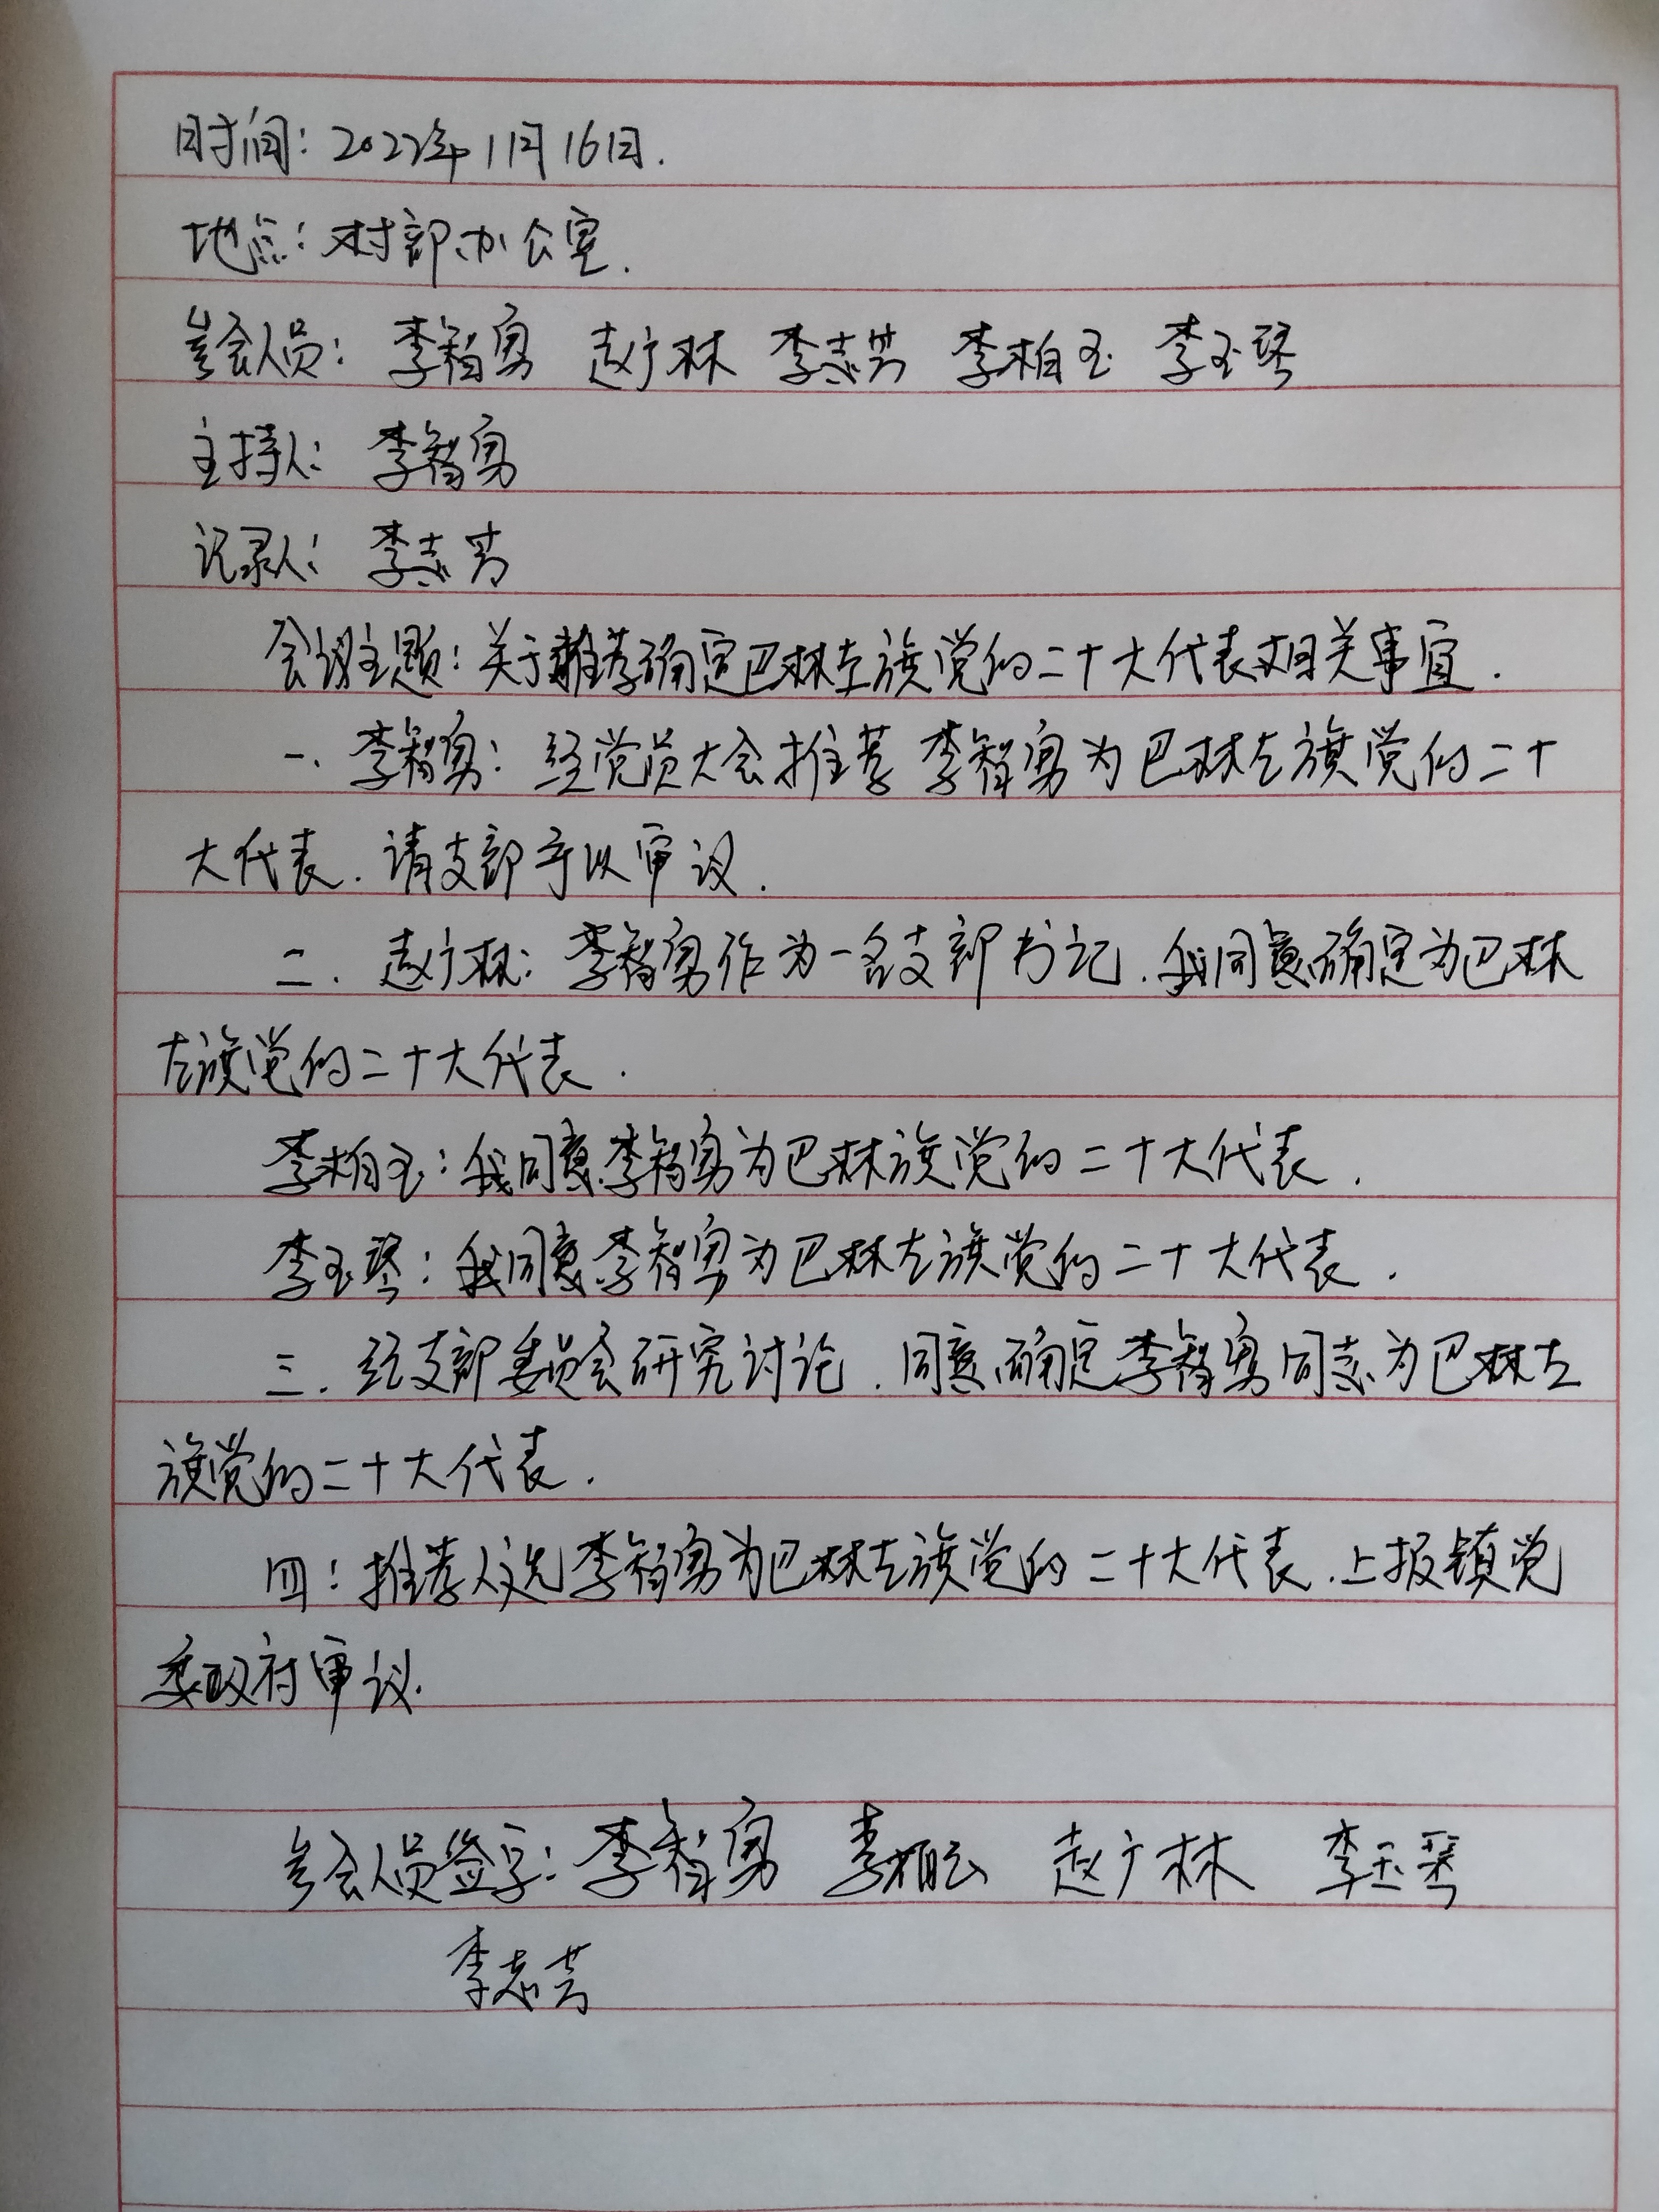 时间：2022年1月16日.
地点：村部办公室.
参会人员：李智勇 赵广林 李志芳 李柏玉 李玉琴
主持人：李智勇
记录人：李志芳
会议主题：关于推荐确定巴林左旗党的二十大代表相关事宜.
一、李智勇：经党员大会推荐李智勇为巴林左旗党的二十
大代表.请支部予以审议.
二.赵广林：李智勇作为一名支部书记.我同意确定为巴林
左旗党的二十大代表.
李柏玉：我同意李智勇为巴林旗党的二十大代表.
李玉琴：我同意李智勇为巴林左旗党的二十大代表.
三.经支部委员会研究讨论.同意确定李智勇同志为巴林左
旗党的二十大代表.
四：推荐人选李智勇为巴林左旗党的二十大代表.上报镇党
委政府审议.
参会人员签字：李智勇 李柏玉 赵广林 李玉琴
李志芳